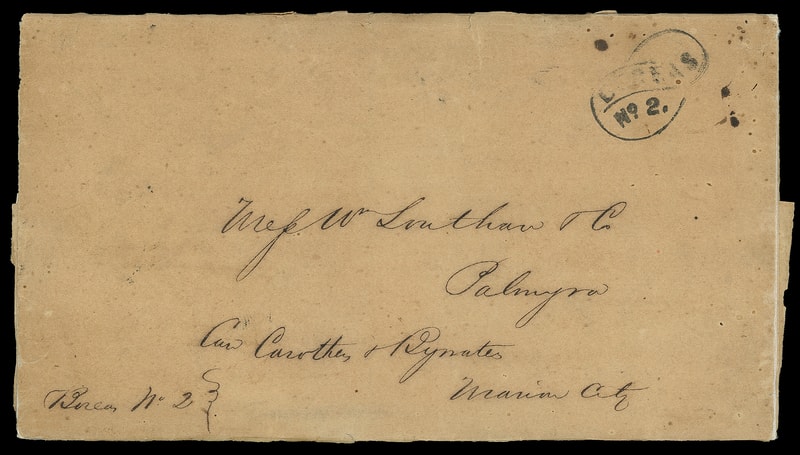 BOREAS
No 2.
Mess Wm Louthan & Co
Palmyra
Care Carothers & Bynates
Marion City
Boreas No 2